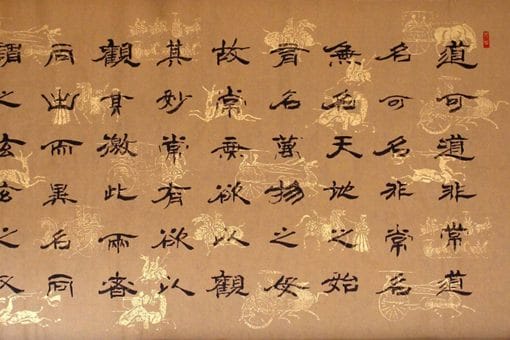 道可道非常道
名可名非常名
無名天地之始
有名萬物之母
故常無欲以觀
其妙常有欲以
觀其徼此兩者
同出而異名同
謂之玄玄之又